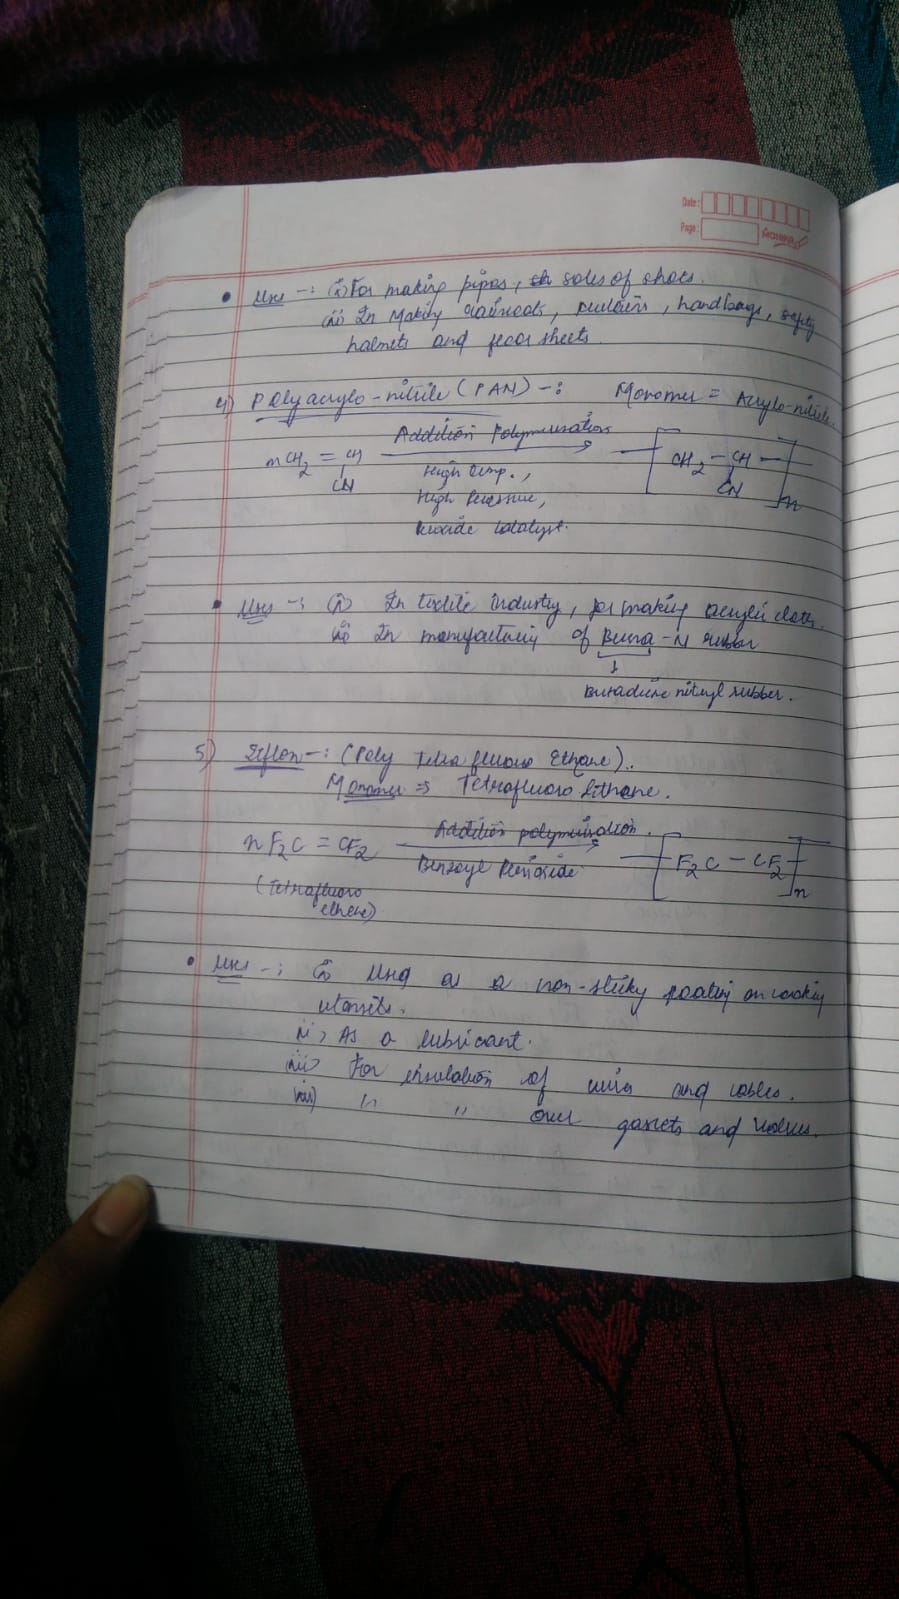 Date :
Page :
• Uses -: (i) For making pipes, soles of shoes.
(ii) In Making raincoats, curtains, handbags, safty
halmets and floor sheets.
4) Polyacrylo-nitrile (PAN) -: Monomer = Acrylo-nitrile.
nCH2 = CH Addition Polymerisation [ CH2 - CH ]n
CN High temp., CN
High Pressure,
Peroxide Catalyst.
• Uses -: (i) In textile industry, for making acrylic cloth.
(ii) In manufacturing of Buna-N rubber
↓
Butadiene nitryl rubber.
5) Teflon -: (Poly Tetra fluoro Ethane).
Monomer => Tetrafluoro Ethane.
nF2C = CF2 Addition polymerisation. [ F2C - CF2 ]n
Benzoyl Peroxide
(Tetrafluoro
ethene)
• Uses -: (i) Used as a non-sticky coating on cooking
utensils.
ii) As a lubricant.
iii) For insulation of wires and cables.
iv) " " over gaskets and valves.